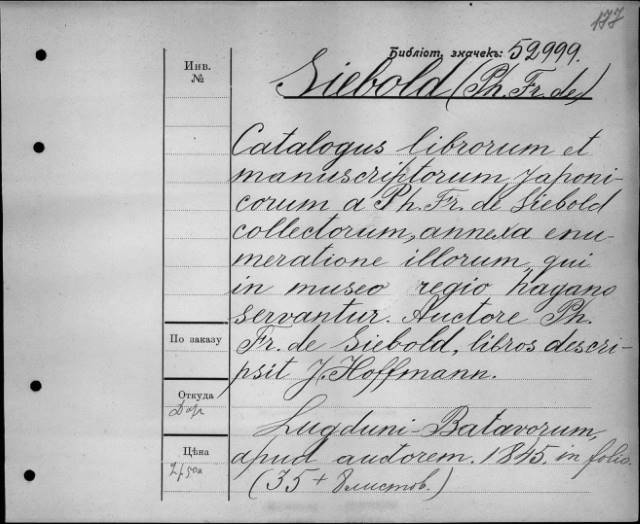 177
Библіот. значекъ: 52999.
Инв.
№
Siebold (Ph. Fr. de)
Catalogus librorum et
manuscriptorum Japoni-
corum a Ph. Fr. de Siebold
collectorum, annexa enu-
meratione illorum, qui
in museo regio hagano
servantur. Auctore Ph.
Fr. de Siebold, libros descri-
psit J. Hoffmann.
Lugduni-Batavorum,
apud autorem. 1845. in folio.
(35 + 8 листов.)
По заказу
Откуда
Дар
Цѣна